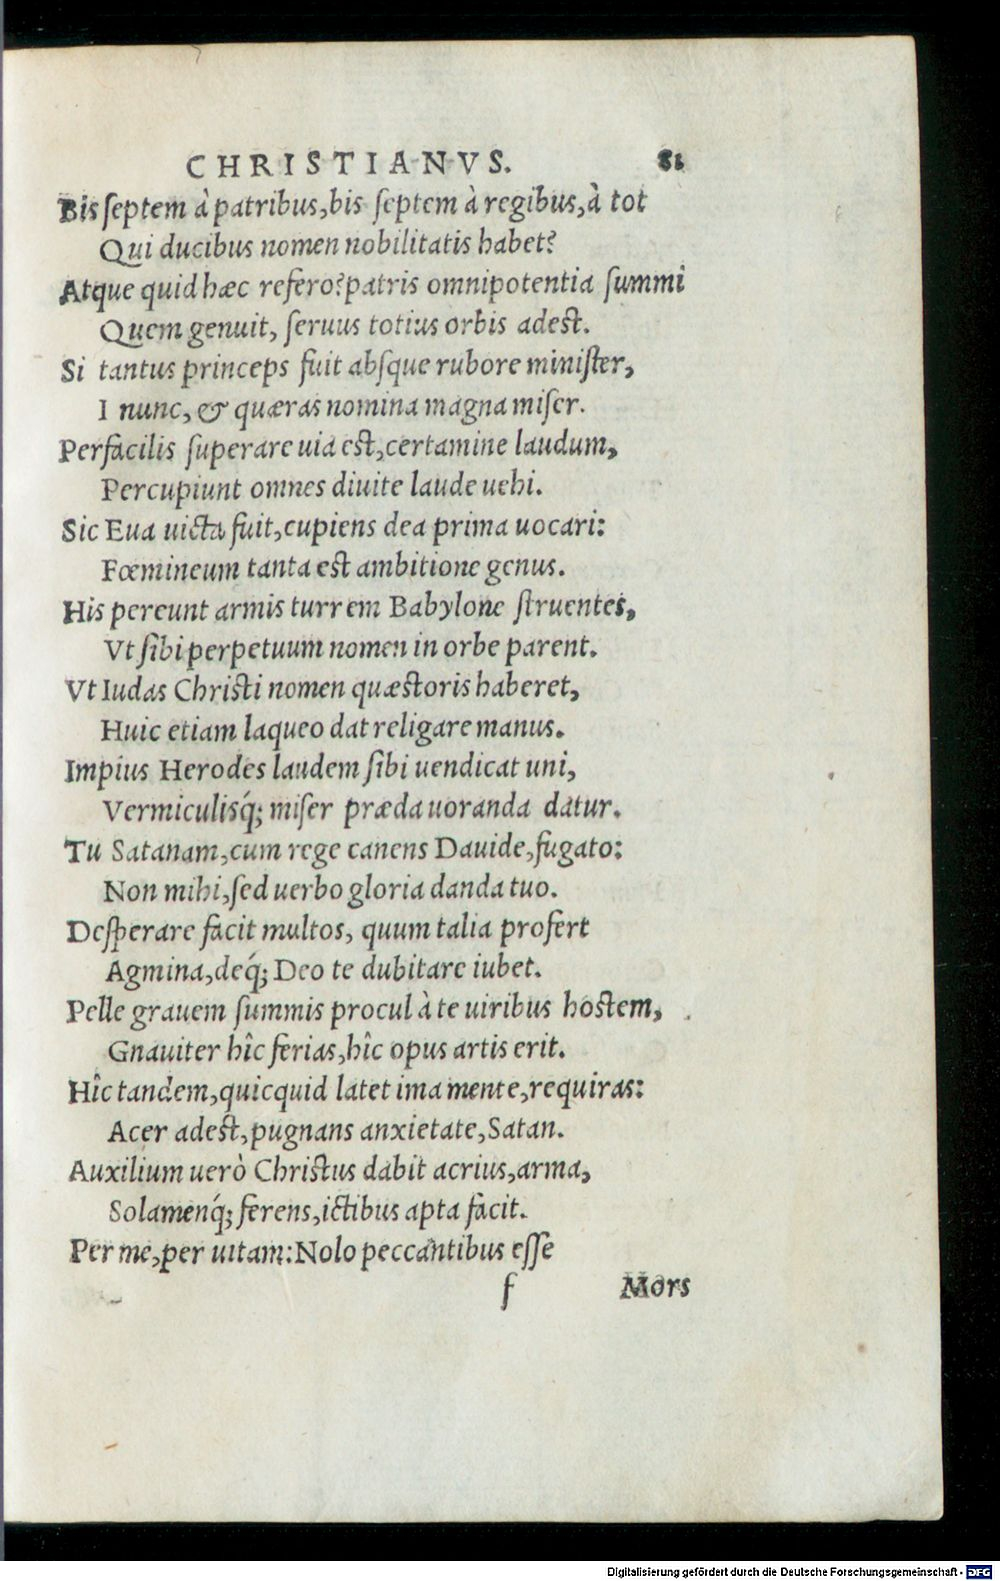 CHRISTIANVS. 81
Bis ſeptem à patribus,bis ſeptem à regibus,à tot
Qui ducibus nomen nobilitatis habet?
Atque quid hæc refero?patris omnipotentia ſummi
Quem genuit, ſeruus totius orbis adest.
Si tantus princeps fuit abſque rubore miniſter,
I nunc, & quæras nomina magna miſer.
Perfacilis ſuperare uia est,certamine laudum,
Percupiunt omnes diuite laude uehi.
Sic Eua uicta fuit,cupiens dea prima uocari:
Fœmineum tanta est ambitione genus.
His pereunt armis turrem Babylone ſtruentes,
Vt ſibi perpetuum nomen in orbe parent.
Vt Iudas Christi nomen quæstoris haberet,
Huic etiam laqueo dat religare manus.
Impius Herodes laudem ſibi uendicat uni,
Vermiculisq́; miſer præda uoranda datur.
Tu Satanam,cum rege canens Dauide,fugato:
Non mihi,ſed uerbo gloria danda tuo.
Deſperare facit multos, quum talia profert
Agmina,deq́; Deo te dubitare iubet.
Pelle grauem ſummis procul à te uiribus hostem,
Gnauiter hîc ferias,hîc opus artis erit.
Hîc tandem,quicquid latet ima mente,requiras:
Acer adest,pugnans anxietate,Satan.
Auxilium uerò Christus dabit acrius,arma,
Solamenq́; ferens,ictibus apta facit.
Per me,per uitam:Nolo peccantibus eſſe
f Mors
Digitalisierung gefördert durch die Deutsche Forschungsgemeinschaft - DFG